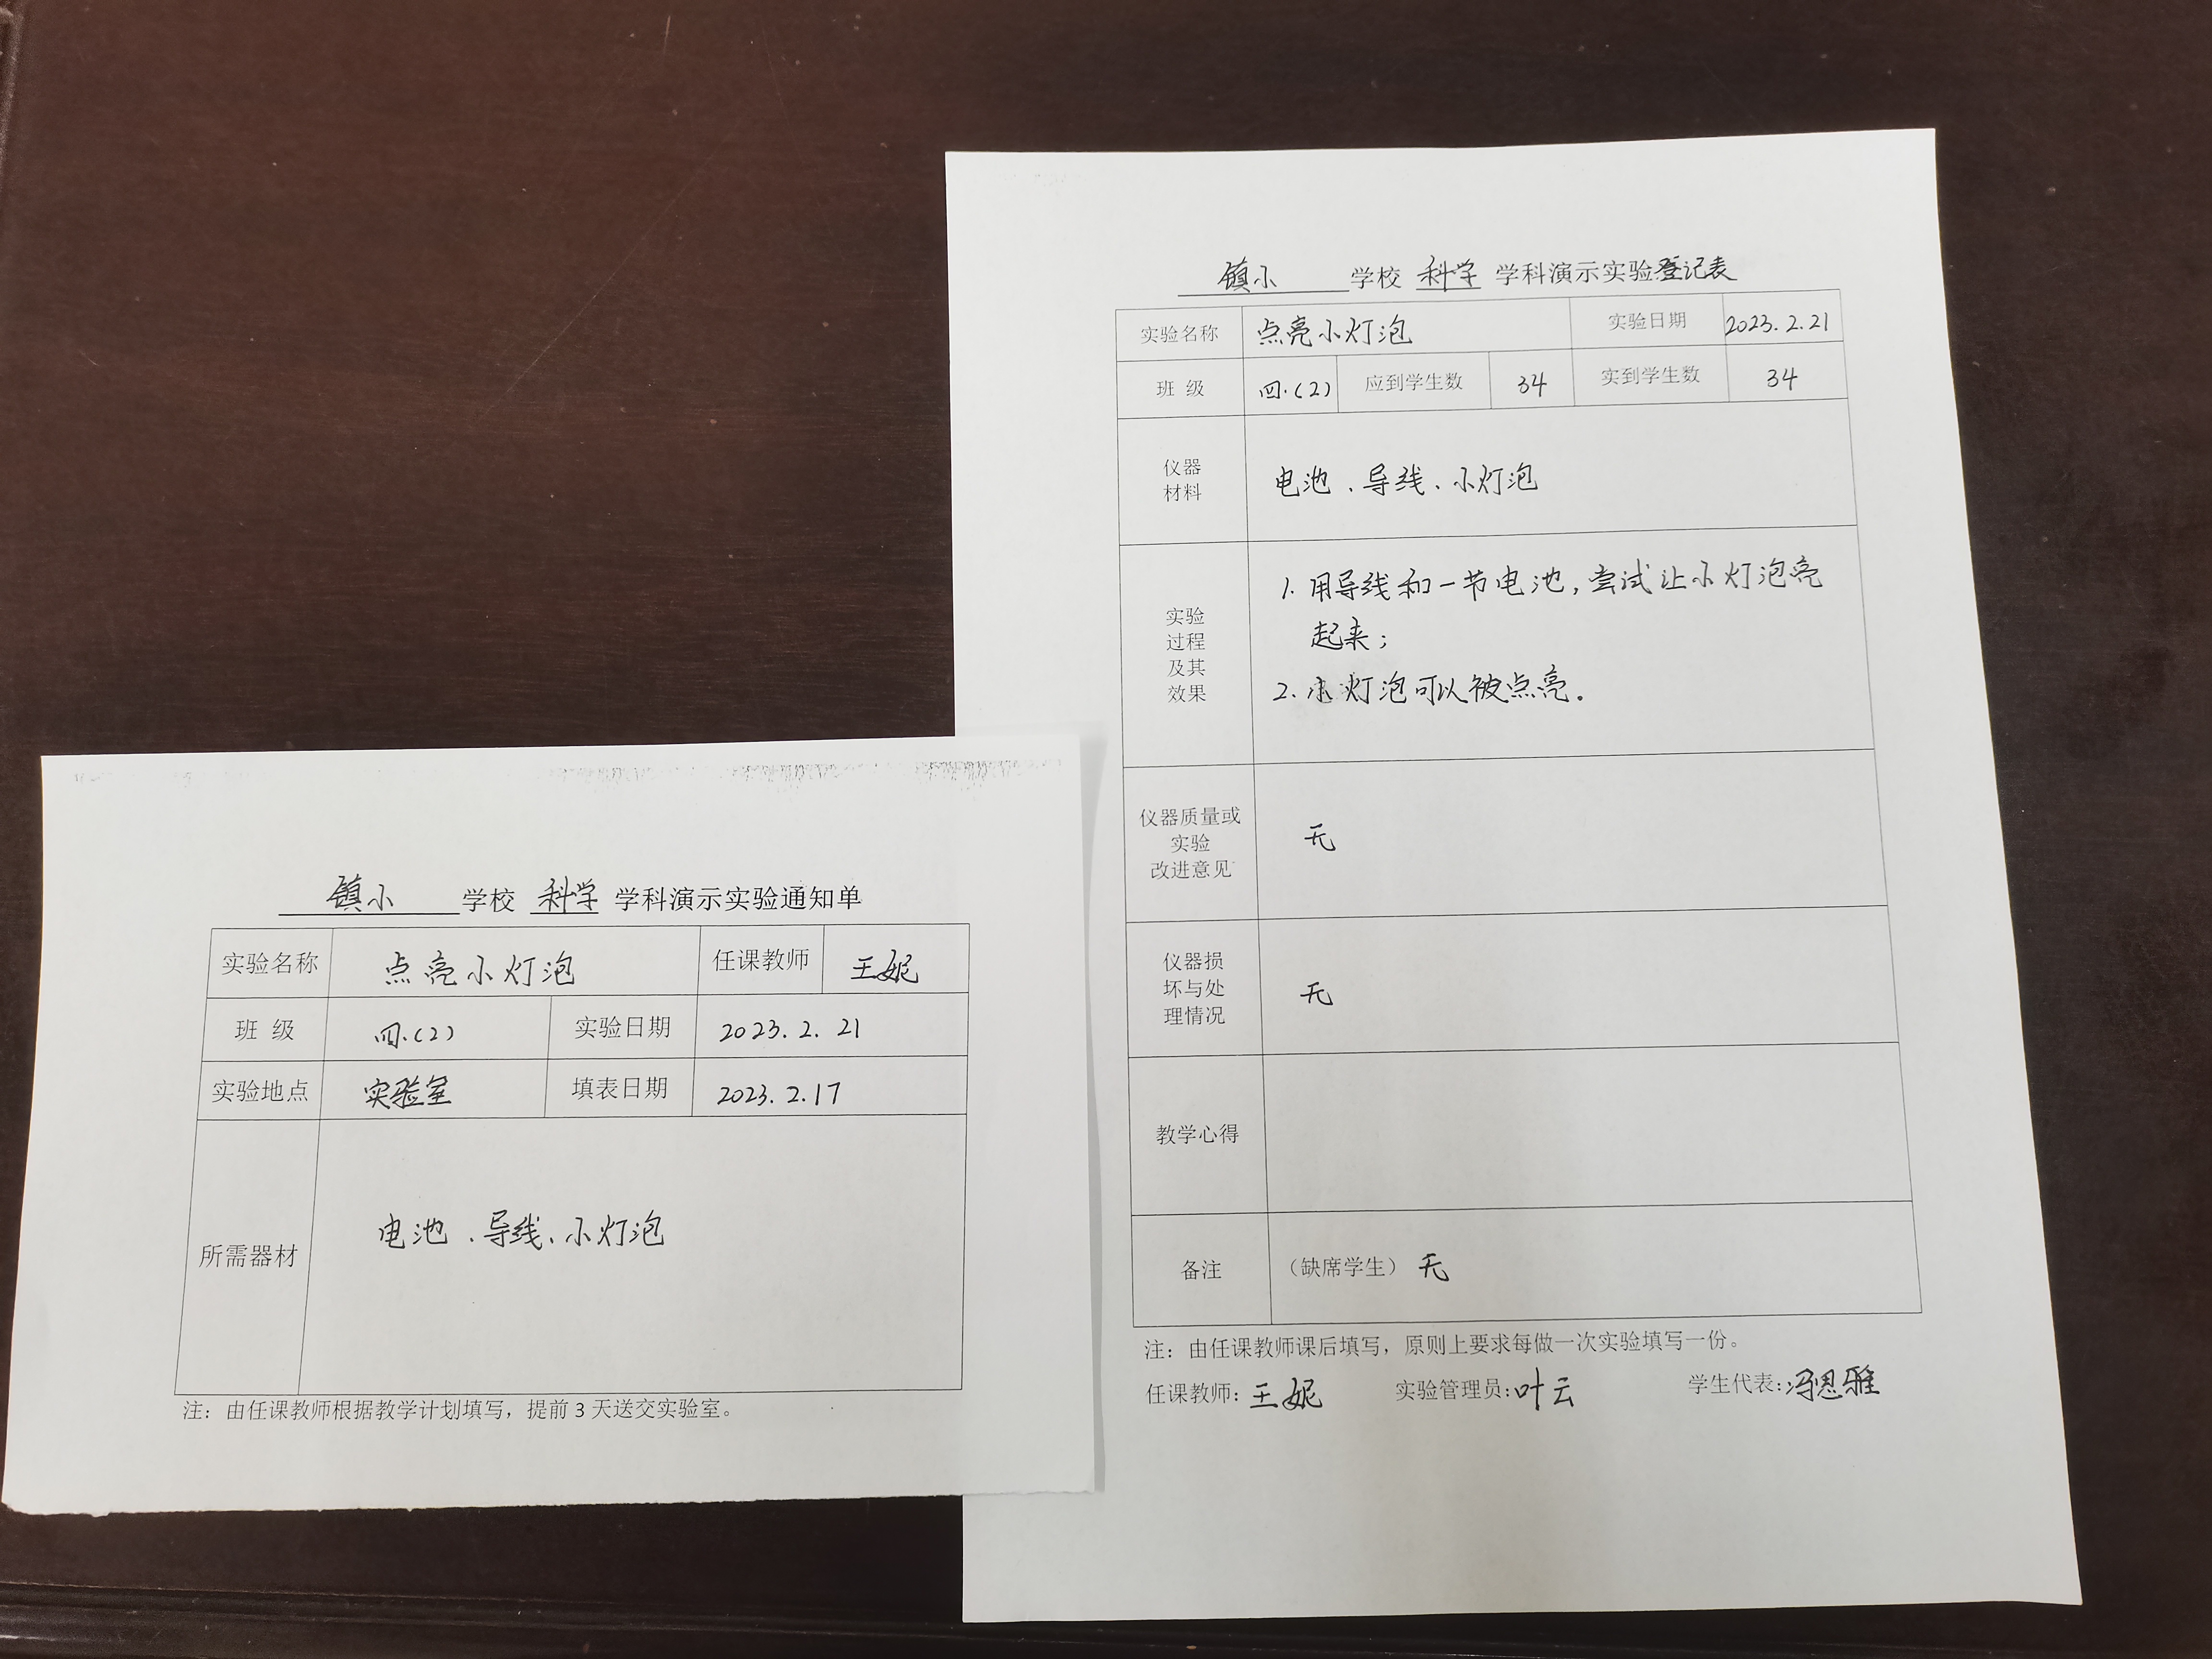 镇小 学校 科学 学科演示实验通知单
实验名称 点亮小灯泡 任课教师 王妮
班 级 四.(2) 实验日期 2023.2.21
实验地点 实验室 填表日期 2023.2.17
所需器材 电池、导线、小灯泡
注：由任课教师根据教学计划填写，提前3天送交实验室。
镇小 学校 科学 学科演示实验登记表
实验名称 点亮小灯泡 实验日期 2023.2.21
班 级 四.(2) 应到学生数 34 实到学生数 34
仪器
材料
电池、导线、小灯泡
实验
过程
及其
效果
1. 用导线和一节电池，尝试让小灯泡亮
起来；
2. 小灯泡可以被点亮。
仪器质量或
实验
改进意见
无
仪器损
坏与处
理情况
无
教学心得
备注 （缺席学生） 无
注：由任课教师课后填写，原则上要求每做一次实验填写一份。
任课教师：王妮 实验管理员：叶云 学生代表：冯思雅